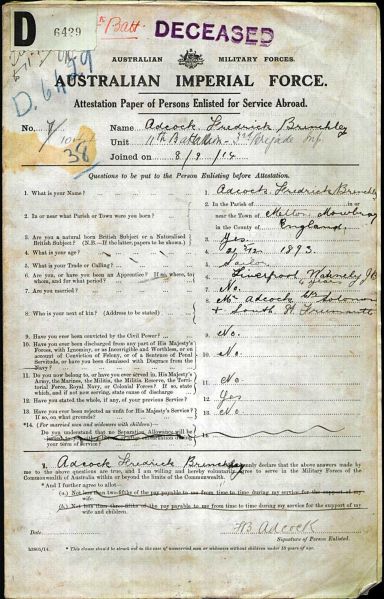 D 6429 Batt. DECEASED
AUSTRALIAN MILITARY FORCES.
AUSTRALIAN IMPERIAL FORCE.
D. 6429
Attestation Paper of Persons Enlisted for Service Abroad.
No. 7 Name Adcock Fredrick Brenchley
38 Unit 11th Battalion 3rd Brigade Inf
Joined on 8/9/14
Questions to be put to the Person Enlisting before Attestation.
1. What is your Name? 1. Adcock Fredrick Brenchley
2. In or near what Parish or Town were you born? 2. In the Parish of
near the Town of Melton Mowbray
in the County of England
3. Are you a natural born British Subject or a Naturalised
British Subject? (N.B.—If the latter, papers to be shown.) 3. Yes
4. What is your age? 4. 1893.
5. What is your Trade or Calling? 5.
6. Are you, or have you been an Apprentice? If so, where,
to whom, and for what period? 6. Liverpool
7. Are you married? 7. No.
8. Who is your next of kin? (Address to be stated) 8. Adcock Solomon
+ South St Fremantle
9. Have you ever been convicted by the Civil Power? 9. No.
10. Have you ever been discharged from any part of His Majesty's
Forces, with Ignominy, or as Incorrigible and Worthless, or on
account of Conviction of Felony, or of a Sentence of Penal
Servitude, or have you been dismissed with Disgrace from the
Navy? 10. No
11. Do you now belong to, or have you ever served in, His Majesty's
Army, the Marines, the Militia, the Militia Reserve, the Terri-
torial Force, Royal Navy, or Colonial Forces? If so, state
which, and if not now serving, state cause of discharge 11. No
12. Have you stated the whole, if any, of your previous Service? 12. Yes
13. Have you ever been rejected as unfit for His Majesty's Service?
If so, on what grounds? 13. No
*14. (For married men and widowers with children)
Do you understand that no Separation Allowance will be
your term of service? 14.
I, Adcock Fredrick Brenchley do solemnly declare that the above answers made by
me to the above questions are true, and I am willing and hereby voluntarily agree to serve in the Military Forces of the
Commonwealth of Australia within or beyond the limits of the Commonwealth.
* And I further agree to allot
(a.) Not less than two-fifths of the pay payable to me from time to time during my service for the support of my
wife.
(b.) Not less than three-fifths of the pay payable to me from time to time during my service for the support of my
wife and children.
Date FB Adcock
Signature of Person Enlisted.
* This clause should be struck out in the case of unmarried men or widowers without children under 18 years of age.